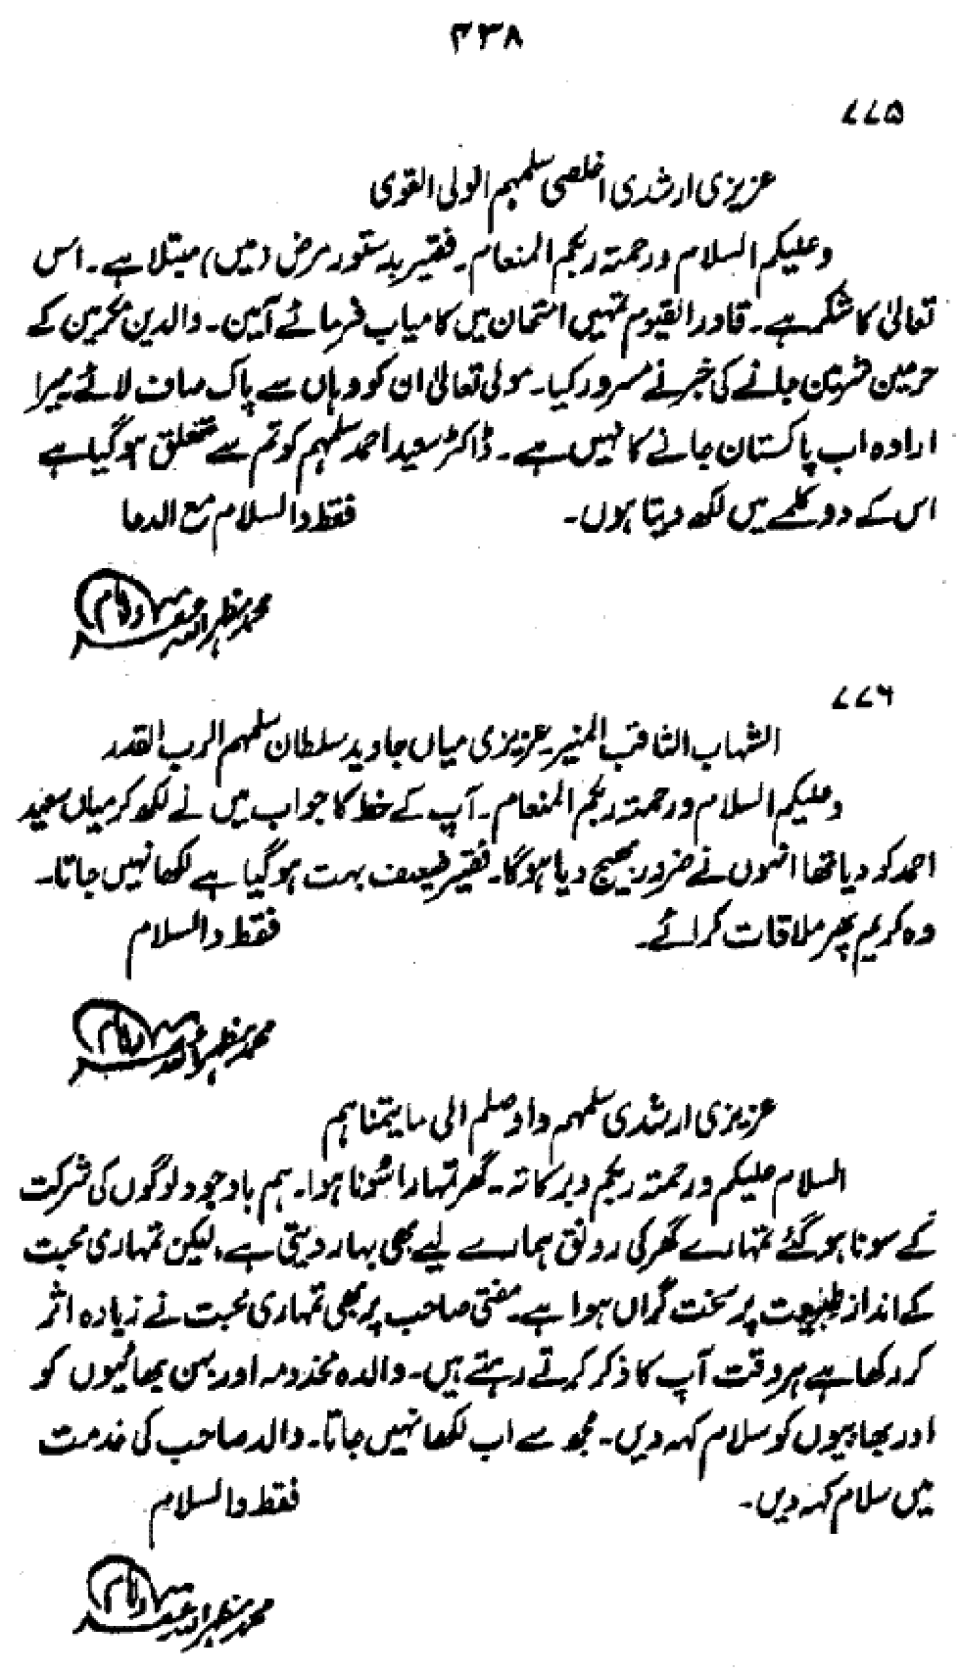 ۴۳۸
۷۷۵
عزیزی ارشدی اخلصی سلمہم الولی القوی
وعلیکم السلام ورحمتہ ربکم المنعام۔ فقیر بدستور مرض (میں) مبتلا ہے۔ اس
تعالیٰ کا شکر ہے۔ قادر القیوم تمہیں امتحان میں کامیاب فرمائے آمین۔ والدین مکرمین کے
حرمین شریفین جانے کی خبر نے مسرور کیا۔ مولی تعالیٰ ان کو وہاں سے پاک صاف لائے میرا
ارادہ اب پاکستان جانے کا نہیں ہے۔ ڈاکٹر سعید احمد سلمہم کو تم سے تعلق ہوگیا ہے
اس کے دو کلمے میں لکھ دیتا ہوں۔ فقط والسلام مع الدعا
محمد مظہر اللہ غفرلہ امام
۷۷۶
الشہاب الثاقب المنیر عزیزی میاں جاوید سلطان سلمہم الرب القدر
وعلیکم السلام ورحمتہ ربکم المنعام۔ آپ کے خط کا جواب میں نے لکھ کر میاں سعید
احمد کو دیا تھا انہوں نے ضرور بھیج دیا ہوگا۔ فقیر ضعیف بہت ہوگیا ہے لکھا نہیں جاتا۔
وہ کریم پھر ملاقات کرائے۔ فقط والسلام
محمد مظہر اللہ غفرلہ امام
عزیزی ارشدی سلمہم واوصلم الی مایتمناہم
السلام علیکم ورحمتہ ربکم وبرکاتہ۔ گھر تمہارا سُونا ہوا۔ ہم باوجود لوگوں کی شرکت
کے سونا ہوگئے تمہارے گھر کی رونق ہمارے لیے بھی بہار دیتی ہے، لیکن تمہاری محبت
کے انداز طبیعت پر سخت گراں ہوا ہے۔ مفتی صاحب پر بھی تمہاری محبت نے زیادہ اثر
کر رکھا ہے ہر وقت آپ کا ذکر کرتے رہتے ہیں۔ والدہ مخدومہ اور بہن بھائیوں کو
اور بھابیوں کو سلام کہہ دیں۔ مجھ سے اب لکھا نہیں جاتا۔ والد صاحب کی خدمت
میں سلام کہہ دیں۔ فقط والسلام
محمد مظہر اللہ غفرلہ امام